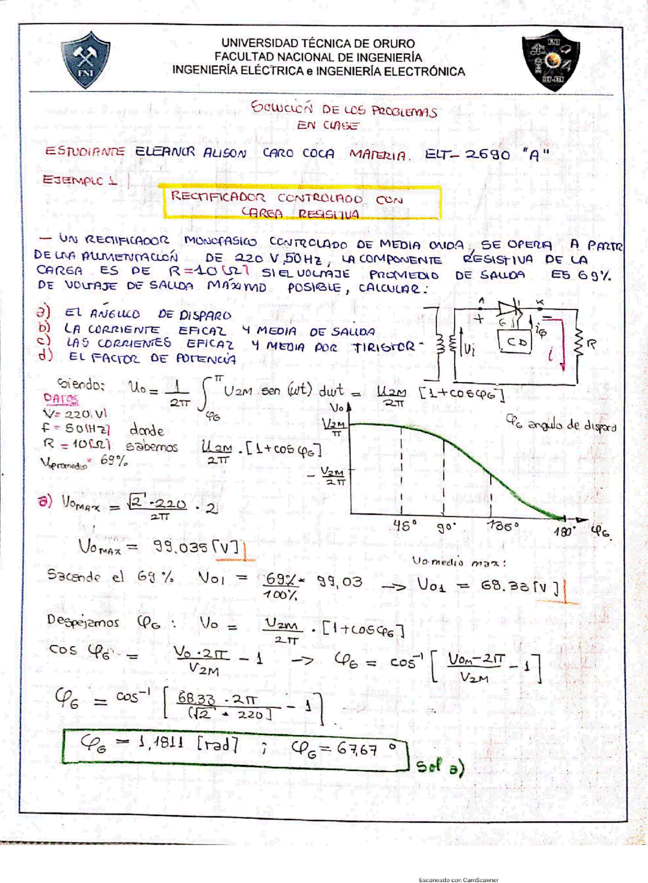 UNIVERSIDAD TÉCNICA DE ORURO
FACULTAD NACIONAL DE INGENIERÍA
INGENIERÍA ELÉCTRICA e INGENIERÍA ELECTRÓNICA
FNI
SOLUCIÓN DE LOS PROBLEMAS
EN CLASE
ESTUDIANTE ELEANOR ALISON CARO COCA MATERIA. ELT-2690 "A"
EJEMPLO 1
RECTIFICADOR CONTROLADO CON
CARGA RESISTIVA
- UN RECTIFICADOR MONOFASICO CONTROLADO DE MEDIA ONDA, SE OPERA A PARTIR
DE UNA ALIMENTACIÓN DE 220 V, 50HZ, LA COMPONENTE RESISTIVA DE LA
CARGA ES DE R=10[Ω] SI EL VOLTAJE PROMEDIO DE SALIDA ES 69%
DE VOLTAJE DE SALIDA MÁXIMO POSIBLE, CALCULAR:
a) EL ANGULO DE DISPARO
b) LA CORRIENTE EFICAZ Y MEDIA DE SALIDA
c) LAS CORRIENTES EFICAZ Y MEDIA POR TIRISTOR-
d) EL FACTOR DE POTENCIA
A K + G iG CD Ui i R
Siendo: Uo = 1/2π ∫φG^π U2M sen (ωt) dωt = U2M/2π [1+cosφG]
DATOS
V= 220[V]
f = 50[Hz] donde
R = 10[Ω] sabemos U2M/2π . [1+cos φG]
Vpromedio= 69%
Vo
V2M/π
V2M/2π
45° 90° 135° 180° φG
φG angulo de disparo
a) VoMAX = √2 · 220/2π · 2
VoMAX = 99,035[V]
Uo medio max:
Sacando el 69% Vo1 = 69%/100% * 99,03 -> Uo1 = 68.33[V]
Despejamos φG : Vo = U2M/2π · [1+cosφG]
cos φG = Vo·2π/V2M - 1 -> φG = cos⁻¹ [UoM-2π/V2M - 1]
φG = cos⁻¹ [68.33 · 2π/(√2 * 220) - 1]
φG = 1,1811 [rad] ; φG = 67,67 °
Sol a)
Escaneado con CamScanner